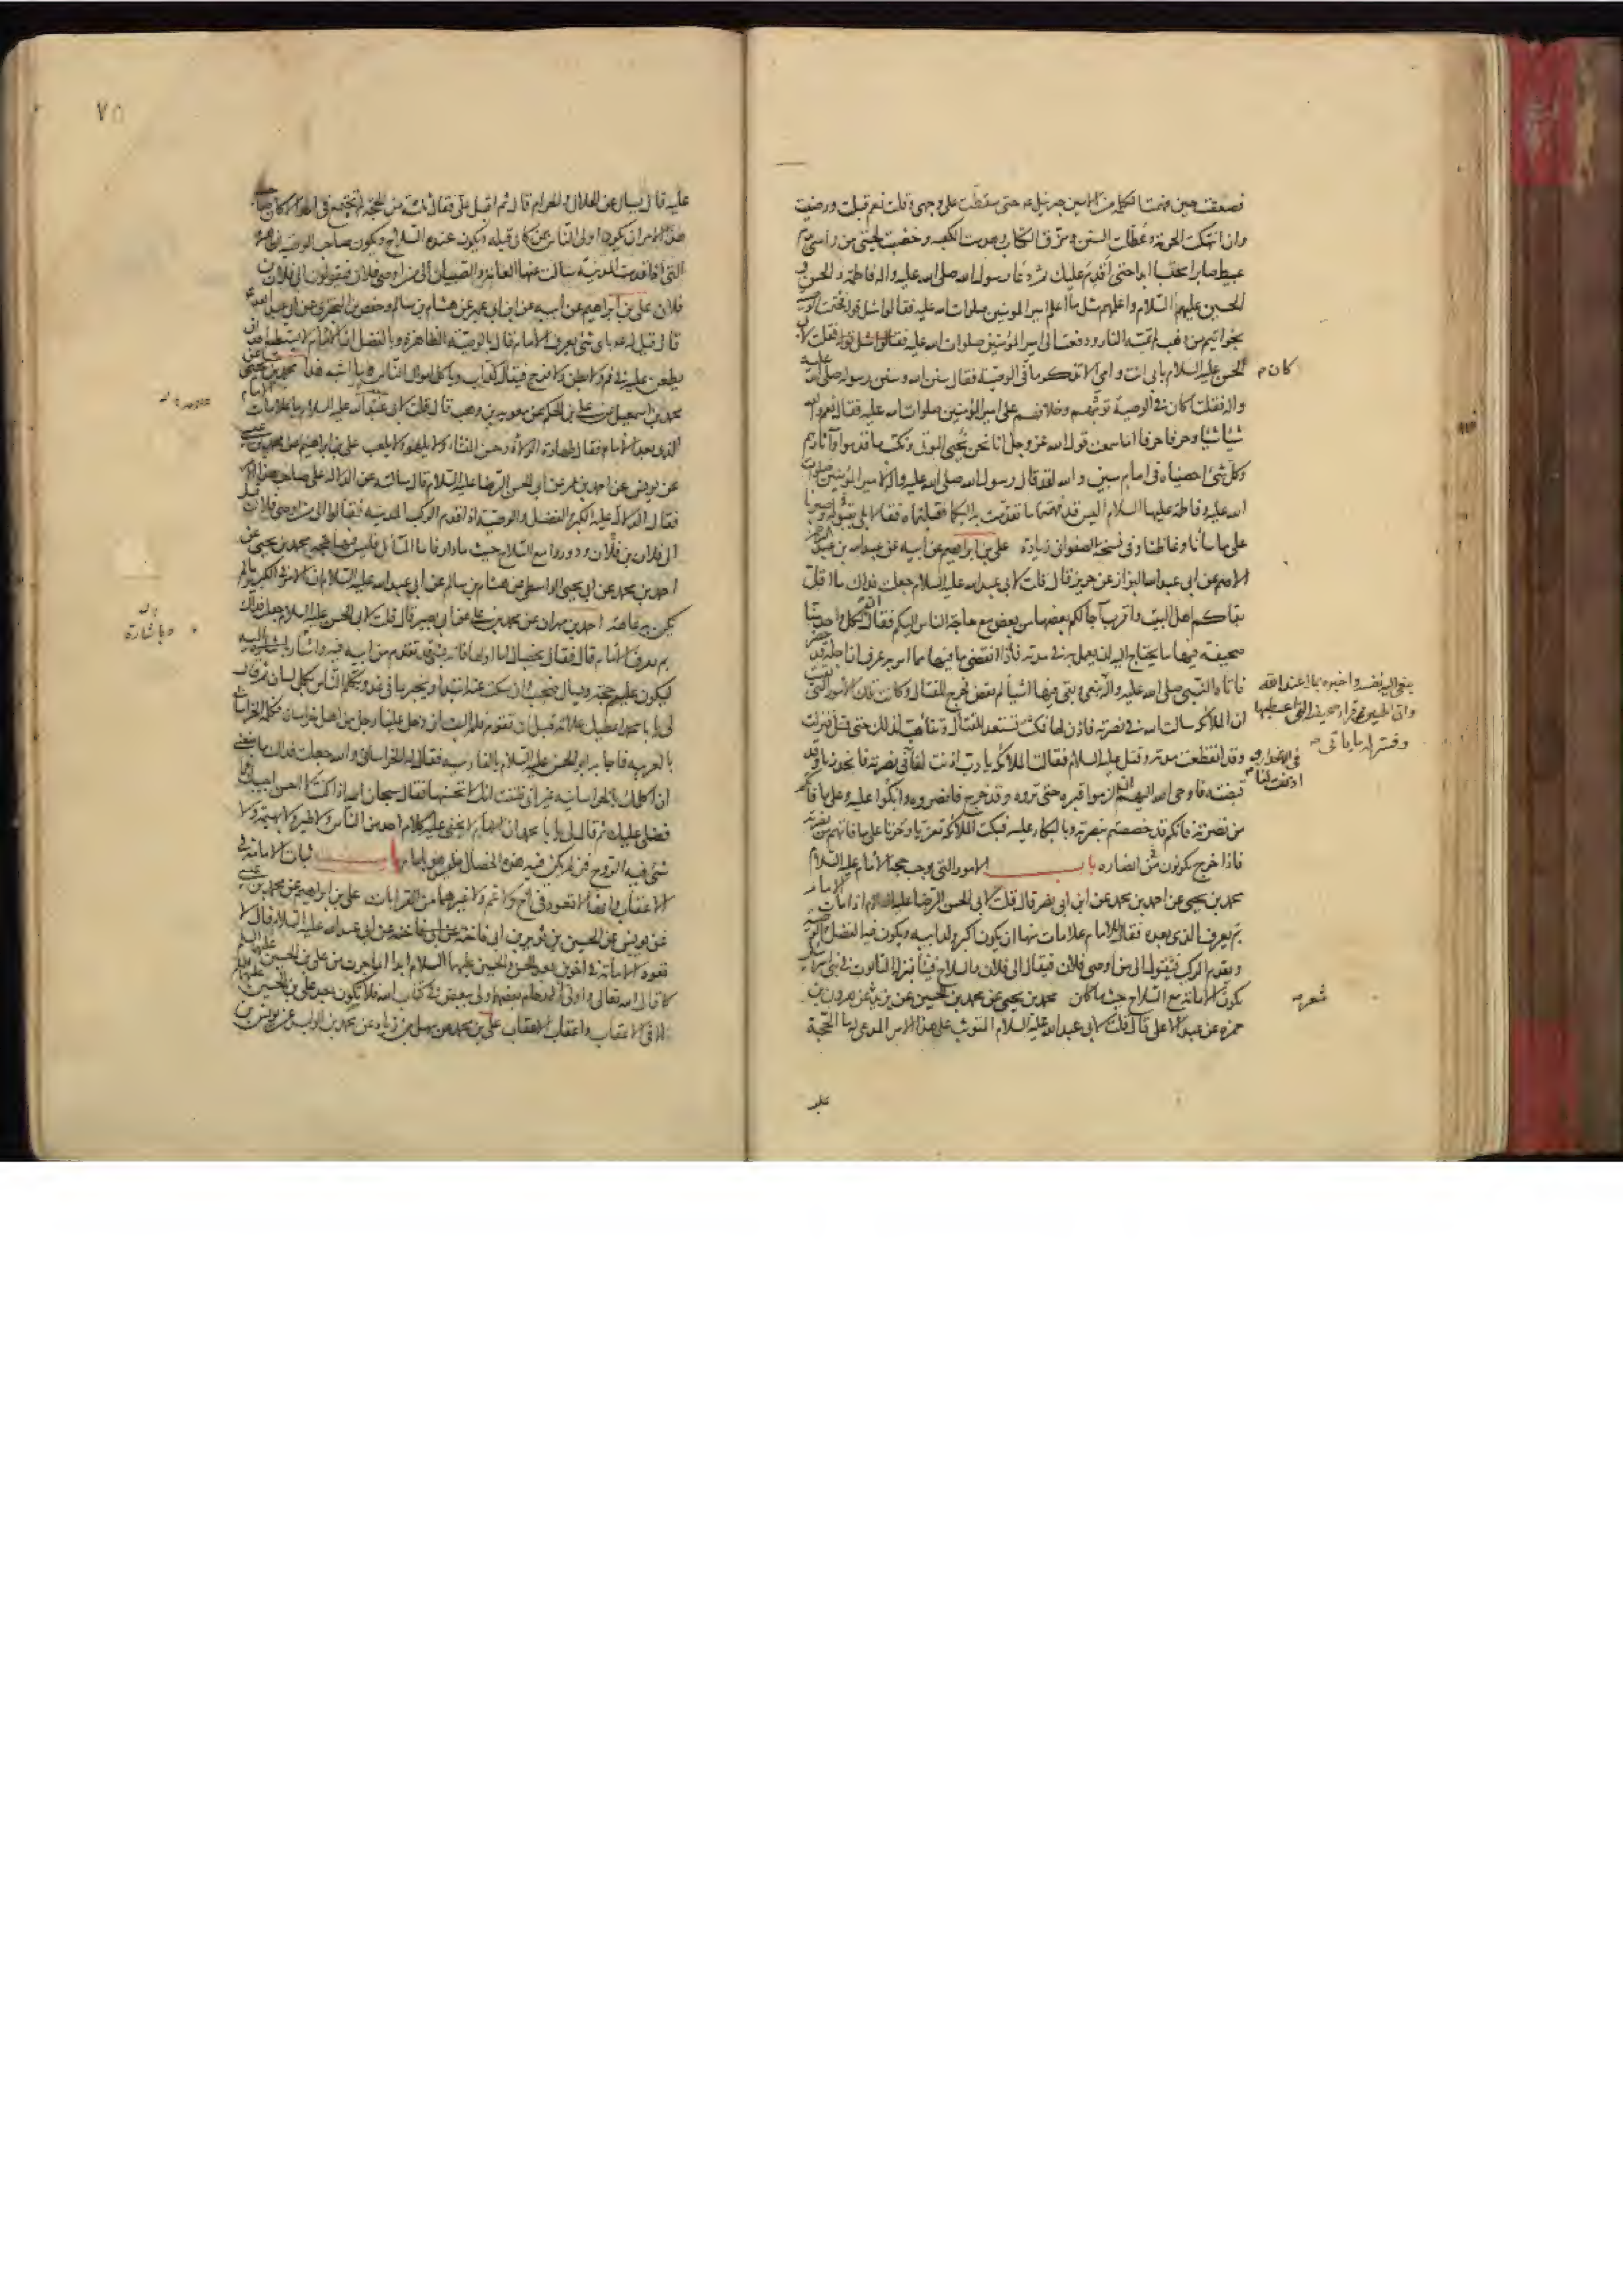 فصعقت حين فهمت الكلمة من الامين جبرئيل عه حتى سقطت على وجهى وقلت نعم قبلت ورضيت
وان انتهكت الحرمة وعطلت السنن ومزق الكتاب وهدمت الكعبة وخضبت لحيتى من رأسى بدم
عبيط صابرا محتسبا ابدا حتى اقدم عليك ثم دعا رسول الله صلى الله عليه واله فاطمة والحسن و
الحسين عليهم السلام واعلمهم مثل ما اعلم امير المومنين صلوات الله عليه فقالوا مثل قوله فختمت الوصية
بخواتيم من ذهب لم تمسه النار ودفعت الى امير المؤمنين صلوات الله عليه فقلت لابى
الحسن عليه السلام بابى انت وامى الا تذكر ما كان فى الوصية فقال سنن الله وسنن رسوله صلى الله عليه
واله فقلت اكان فى الوصية توثبهم وخلافهم على امير المؤمنين صلوات الله عليه فقال نعم والله
شيئا شيئا وحرفا حرفا اما سمعت قول الله عز وجل انا نحن نحيى الموتى ونكتب ما قدموا وآثارهم
وكل شئ احصيناه فى امام مبين والله لقد قال رسول الله صلى الله عليه واله لامير المؤمنين صلوات
الله عليه وفاطمة عليها السلام اليس قد فهمتما ما تقدمت به اليكما وقبلتماه فقالا بلى بقبوله وصبرنا
على ما ساءنا وغاظنا وفى نسخة الصفوانى زيادة على بن ابراهيم عن ابيه عن عبد الله بن عبد الرحمن
الاصم عن ابى عبد الله البزاز عن حريز قال قلت لابى عبد الله عليه السلام جعلت فداك ما اقل
بقاءكم اهل البيت واقرب آجالكم بعضها من بعض مع حاجة الناس اليكم فقال ان لكل واحد منا
صحيفة فيها ما يحتاج اليه ان يعمل به فى مدته فاذا انقضى ما فيها مما امر به عرف ان اجله قد حضر
فاتاه النبى صلى الله عليه واله وبقى فيها اشياء لم تقض فخرج للقتال وكانت تلك الامور التى بقيت
ان الملائكة سالت الله فى نصرته فاذن لها فمكثت تستعد للقتال وتتأهب لذلك حتى قتل فنزلت
وقد انقطعت مدته وقتل عليه السلام فقالت الملائكة يا رب اذنت لنا فى نصرته فانحدرنا وقد
قبضته فاوحى الله اليهم ان الزموا قبره حتى تروه وقد خرج فانصروه وابكوا عليه وعلى ما فاتكم
من نصرته فانكم قد خصصتم بنصرته وبالبكاء عليه فبكت الملائكة تعزيا وحزنا على ما فاتهم من نصرته
فاذا خرج يكونون من انصاره باب الامور التى توجب حجة الامام عليه السلام
محمد بن يحيى عن احمد بن محمد عن ابن ابى نصر قال قلت لابى الحسن الرضا عليه السلام اذا مات الامام
بم يعرف الذى بعده فقال للامام علامات منها ان يكون اكبر ولد ابيه ويكون فيه الفضل والوصية
ويقدم الركب فيقول الى من اوصى فلان فيقال الى فلان والسلاح فينا بمنزلة التابوت فى بنى اسرائيل
تكون الامامة مع السلاح حيث ما كان محمد بن يحيى عن محمد بن الحسين عن يزيد شعر عن هرون بن
حمزه عن عبد الاعلى قال قلت لابى عبد الله عليه السلام المتوثب على هذا الامر المدعى له ما الحجة
كان م
ينعى اليه نفسه واخبره بما له عند الله
وان الحسين عه قرأ صحيفته التى اعطيها
وفسر له ما ياتى
شعر
عليه
٧٥
عليه قال يسال عن الحلال والحرام قال ثم اقبل على فقال ثلثة من الحجة لم تجتمع فى احد الا كان صاحب
هذا الامر ان يكون اولى الناس بمن كان قبله ويكون عنده السلاح ويكون صاحب الوصية الظاهرة
التى اذا قدمت المدينة سالت عنها العامة والصبيان الى من اوصى فلان فيقولون الى فلان بن
فلان على بن ابراهيم عن ابيه عن ابن ابى عمير عن هشام بن سالم وحفص بن البخترى عن ابى عبد الله عه
قال قيل له باى شئ يعرف الامام قال بالوصية الظاهرة وبالفضل ان الامام لا يستطيع احد ان
يطعن عليه فى فم ولا بطن ولا فرج فيقال كذاب وياكل اموال الناس وما اشبه هذا محمد بن يحيى عن
محمد بن اسمعيل عن على بن الحكم عن معوية بن وهب قال قلت لابى عبد الله عليه السلام ما علامات الامام
الذى بعد الامام فقال طهارة الولادة وحسن المنشاء ولا يلهو ولا يلعب على بن ابراهيم عن محمد بن عيسى
عن يونس عن احمد بن عمر عن ابى الحسن الرضا عليه السلام قال سالته عن الدلالة على صاحب هذا الامر
فقال الدلالة عليه الكبر والفضل والوصية اذا قدم الركب المدينة فقالوا الى من اوصى فلان قيل
الى فلان بن فلان ودوروا مع السلاح حيث ما دار فاما المسائل فليس فيها حجة محمد بن يحيى عن
احمد بن محمد عن ابى يحيى الواسطى عن هشام بن سالم عن ابى عبد الله عليه السلام ان الامر فى الكبير ما لم
تكن به عاهة احمد بن مهران عن محمد بن على عن ابى بصير قال قلت لابى الحسن عليه السلام جعلت فداك
بم يعرف الامام قال فقال بخصال اما اولها فانه بشئ قد تقدم من ابيه فيه واشار اليه
ليكون عليهم حجة ويسال فيجيب وان سكت عنه ابتدا ويخبر بما فى غد ويكلم الناس بكل لسان ثم قال
لى يا با محمد اعطيك علامة قبل ان تقوم فلم البث ان دخل علينا رجل من اهل خراسان فكلمه الخراسانى
بالعربيه فاجابه ابو الحسن عليه السلام بالفارسيه فقال له الخراسانى والله جعلت فداك ما منعنى
ان اكلمك بالخراسانيه غير انى ظننت انك لا تحسنها فقال سبحان الله اذا كنت لا احسن اجيبك فما
فضلى عليك ثم قال لى يا با محمد ان الامام لا يخفى عليه كلام احد من الناس ولا طير ولا بهيمة ولا
شئ فيه الروح فمن لم يكن فيه هذه الخصال فليس هو بامام باب ثبات الامامة فى
الاعقاب وانها لا تعود فى اخ ولا عم ولا غيرهما من القرابات على بن ابراهيم عن محمد بن عيسى
عن يونس عن الحسين بن ثوير بن ابى فاختة عن ابى عبد الله عليه السلام قال لا
تعود الامامة فى اخوين بعد الحسن والحسين عليهما السلام ابدا انما جرت من على بن الحسين عليهما السلم
كما قال الله تعالى واولوا الارحام بعضهم اولى ببعض فى كتاب الله فلا تكون بعد على بن الحسين عليهما السلم
الا فى الاعقاب واعقاب الاعقاب على بن محمد عن سهل بن زياد عن محمد بن الوليد عن يونس بن
وباشارة